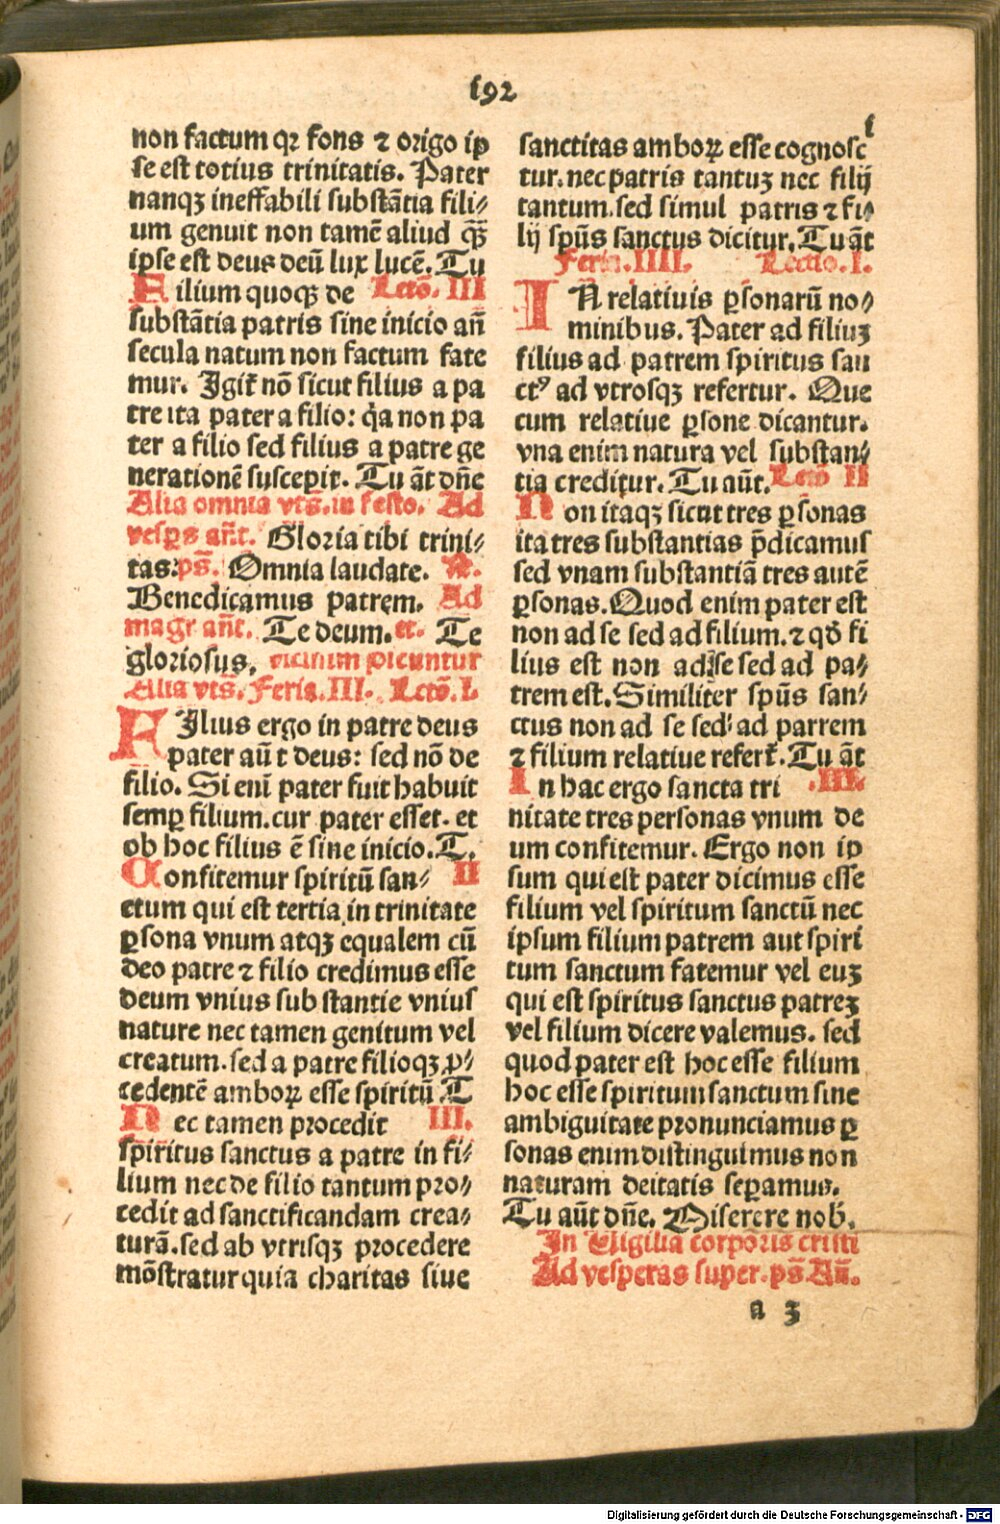 192
non factum qꝛ fons ⁊ origo ip
se est totius trinitatis. Pater
nanqꝫ ineffabili substãtia fili⸗
um genuit non tamẽ aliud q̃ꝫ
ipse est deus deũ lux lucẽ. Tu
Filium quoqꝫ de Lctõ. III
substãtia patris sine inicio añ
secula natum non factum fate
mur. Igit̃ nõ sicut filius a pa
tre ita pater a filio: q̃a non pa
ter a filio sed filius a patre ge
nerationẽ suscepit. Tu ãt dñe
Alia omnia vts̃. in festo. Ad
vesp̱s añt. Gloria tibi trini⸗
tas. ps̃. Omnia laudate. R̃.
Benedicamus patrem. Ad
magr añt. Te deum. et. Te
gloriosus, vicissim dicuntur
Alia vts̃. Feria. III. Lctõ. I.
FIlius ergo in patre deus
pater aũt deus: sed nõ de
filio. Si eni pater fuit habuit
semp̱ filium. cur pater esset. et
ob hoc filius ẽ sine inicio. T.
Confitemur spiritũ san⸗ II
ctum qui est tertia in trinitate
p̱sona vnum atqꝫ equalem cũ
deo patre ⁊ filio credimus esse
deum vnius sub stantie vnius
nature nec tamen genitum vel
creatum. sed a patre filioqꝫ ꝓ⸗
cedentẽ amboꝝ esse spiritũ T
Nec tamen procedit III.
spiritus sanctus a patre in fi⸗
lium nec de filio tantum pro⸗
cedit ad sanctificandam crea⸗
turã. sed ab vtrisqꝫ procedere
mõstratur quia charitas siue
sanctitas amboꝝ esse cognosc
tur. nec patris tantuꝫ nec filij
tantum. sed simul patris ⁊ fi⸗
lij spũs sanctus dicitur. Tu ãt
Feria. IIII. Lectio. I.
IN relatiuis p̱sonarũ no⸗
minibus. Pater ad filiuꝫ
filius ad patrem spiritus san
ctꝰ ad vtrosqꝫ refertur. Que
cum relatiue p̱sone dicantur.
vna enim natura vel substan⸗
tia creditur. Tu aũt. Lctõ II
Non itaqꝫ sicut tres p̱sonas
ita tres substantias p̃dicamus
sed vnam substantiã tres autẽ
p̱sonas. Quod enim pater est
non ad se sed ad filium. ⁊ qď fi
lius est non ad se sed ad pa⸗
trem est. Similiter spũs san⸗
ctus non ad se sed ad patrem
⁊ filium relatiue refert̃. Tu ãt
In hac ergo sancta tri .III.
nitate tres personas vnum de
um confitemur. Ergo non ip
sum qui est pater dicimus esse
filium vel spiritum sanctũ nec
ipsum filium patrem aut spiri
tum sanctum fatemur vel euꝫ
qui est spiritus sanctus patreꝫ
vel filium dicere valemus. sed
quod pater est hoc esse filium
hoc esse spiritum sanctum sine
ambiguitate pronunciamus p̱
sonas enim distinguimus non
naturam deitatis sep̱amus.
Tu aũt dñe. Miserere nob̃.
In Uigilia corpõris cristi
Ad vesperas super. ps̃ Añ.
a 3
Digitalisierung gefördert durch die Deutsche Forschungsgemeinschaft - DFG